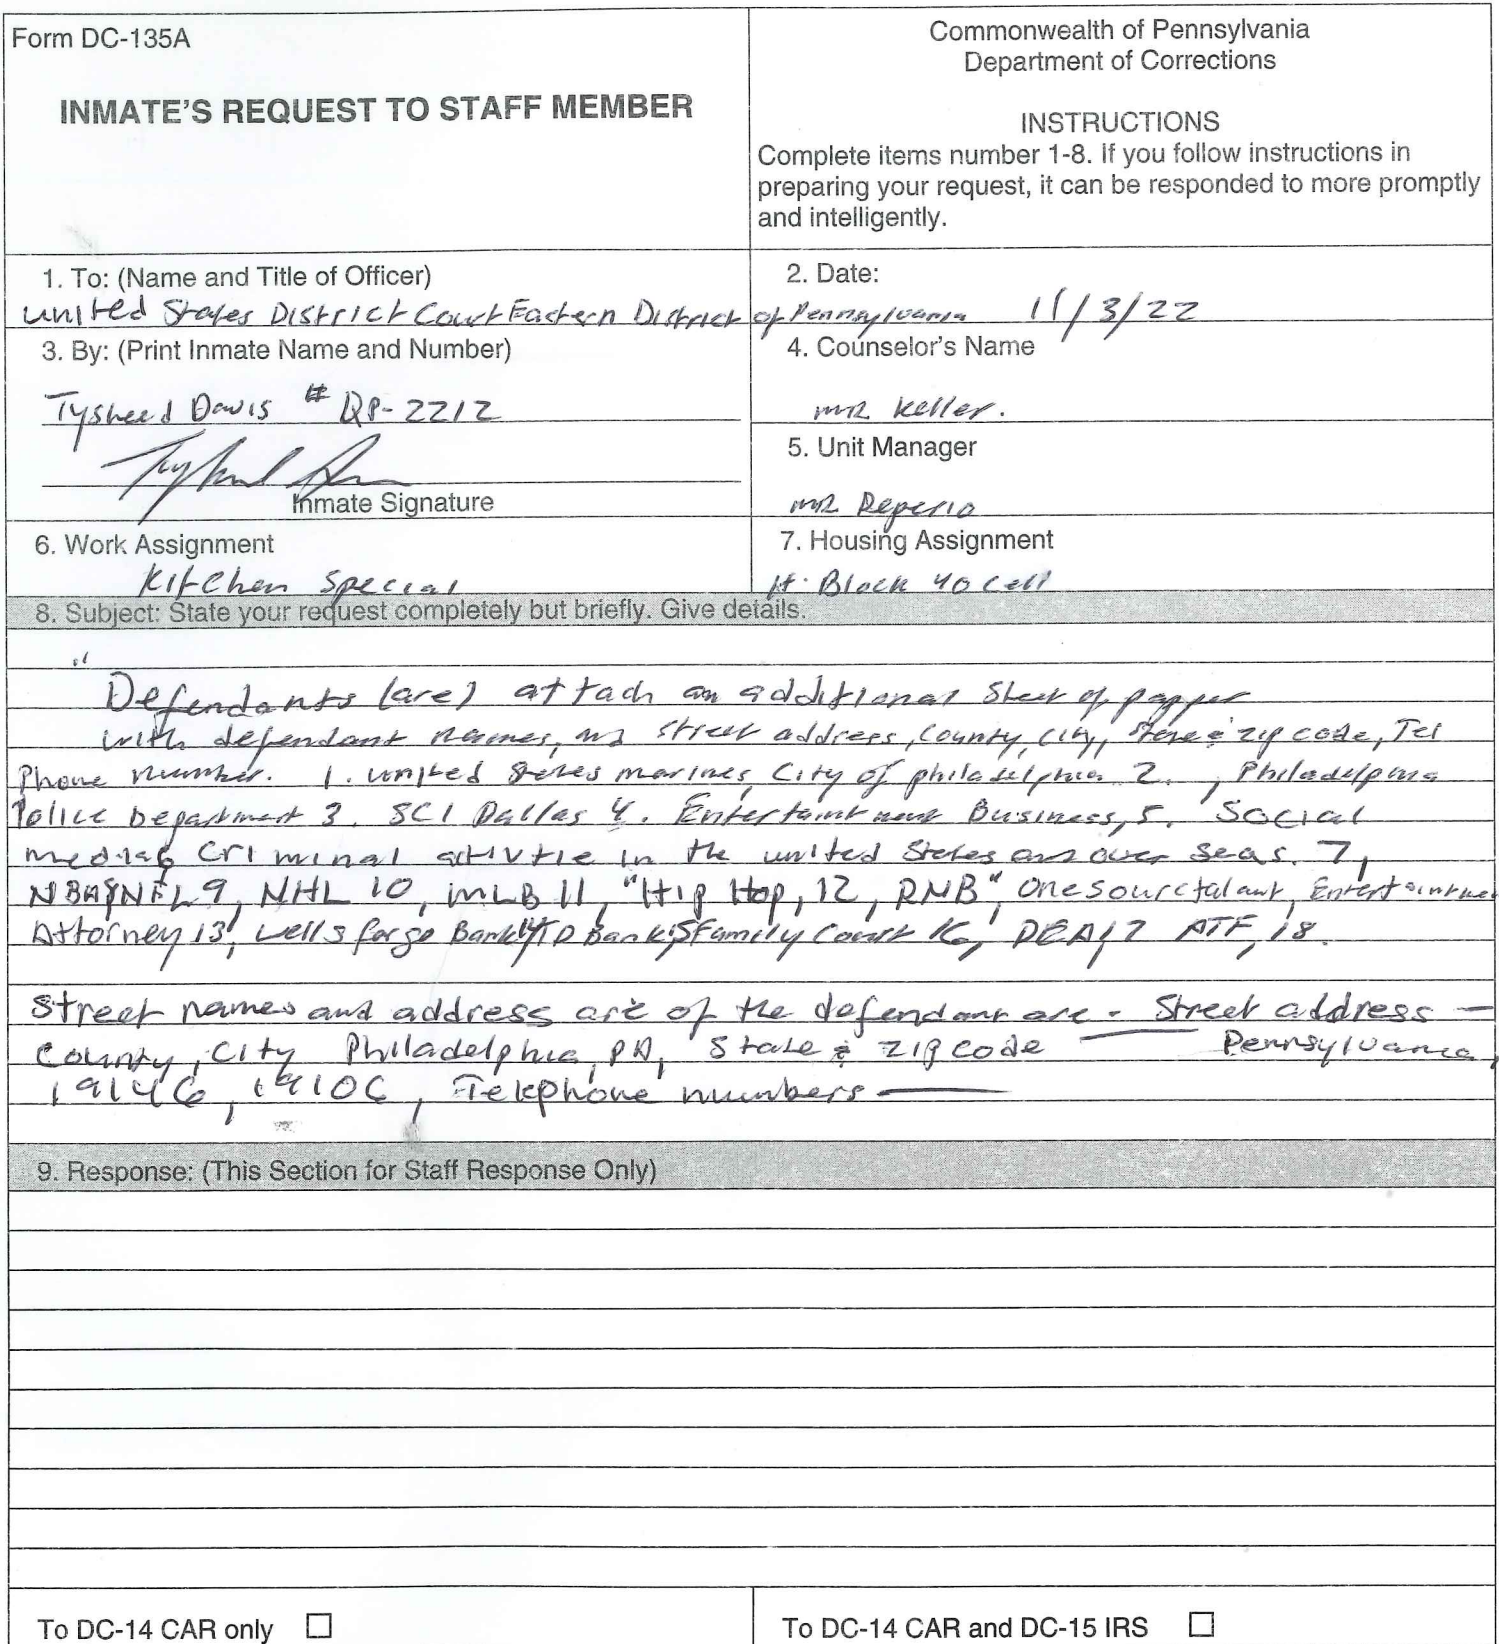 Form DC-135A
INMATE'S REQUEST TO STAFF MEMBER
Commonwealth of Pennsylvania
Department of Corrections
INSTRUCTIONS
Complete items number 1-8. If you follow instructions in
preparing your request, it can be responded to more promptly
and intelligently.
1. To: (Name and Title of Officer)
United States District Court Eastern District of Pennsylvania
2. Date:
11/3/22
3. By: (Print Inmate Name and Number)
Tysheed Davis # QP-2212
Inmate Signature
4. Counselor's Name
mr Keller.
5. Unit Manager
mr
6. Work Assignment
Kitchen Special
7. Housing Assignment
H. Block 40 Cell
8. Subject: State your request completely but briefly. Give details.
"Defendants (are) attach an additional Sheet of papper
with defendant names, street address, County, City, State & zip code, Tel
Phone number. 1. united States marines, City of philadelphia 2. , Philadelphia
Police Department 3. SCI Dallas 4. Business, 5. Social
media 6 Criminal in the united States over seas. 7,
NBA 8 NFL 9, NHL 10, MLB 11, "Hip Hop, 12, RNB",
Attorney 13, Wells fargo Bank 14 TD Bank 15 Family Court 16, DEA 17 ATF, 18.
Street names and address are of the defendant are - Street address —
County, City Philadelphia, PA, State & zip code — Pennsylvania,
19146, 19106, Telephone numbers —
9. Response: (This Section for Staff Response Only)
To DC-14 CAR only ☐
To DC-14 CAR and DC-15 IRS ☐